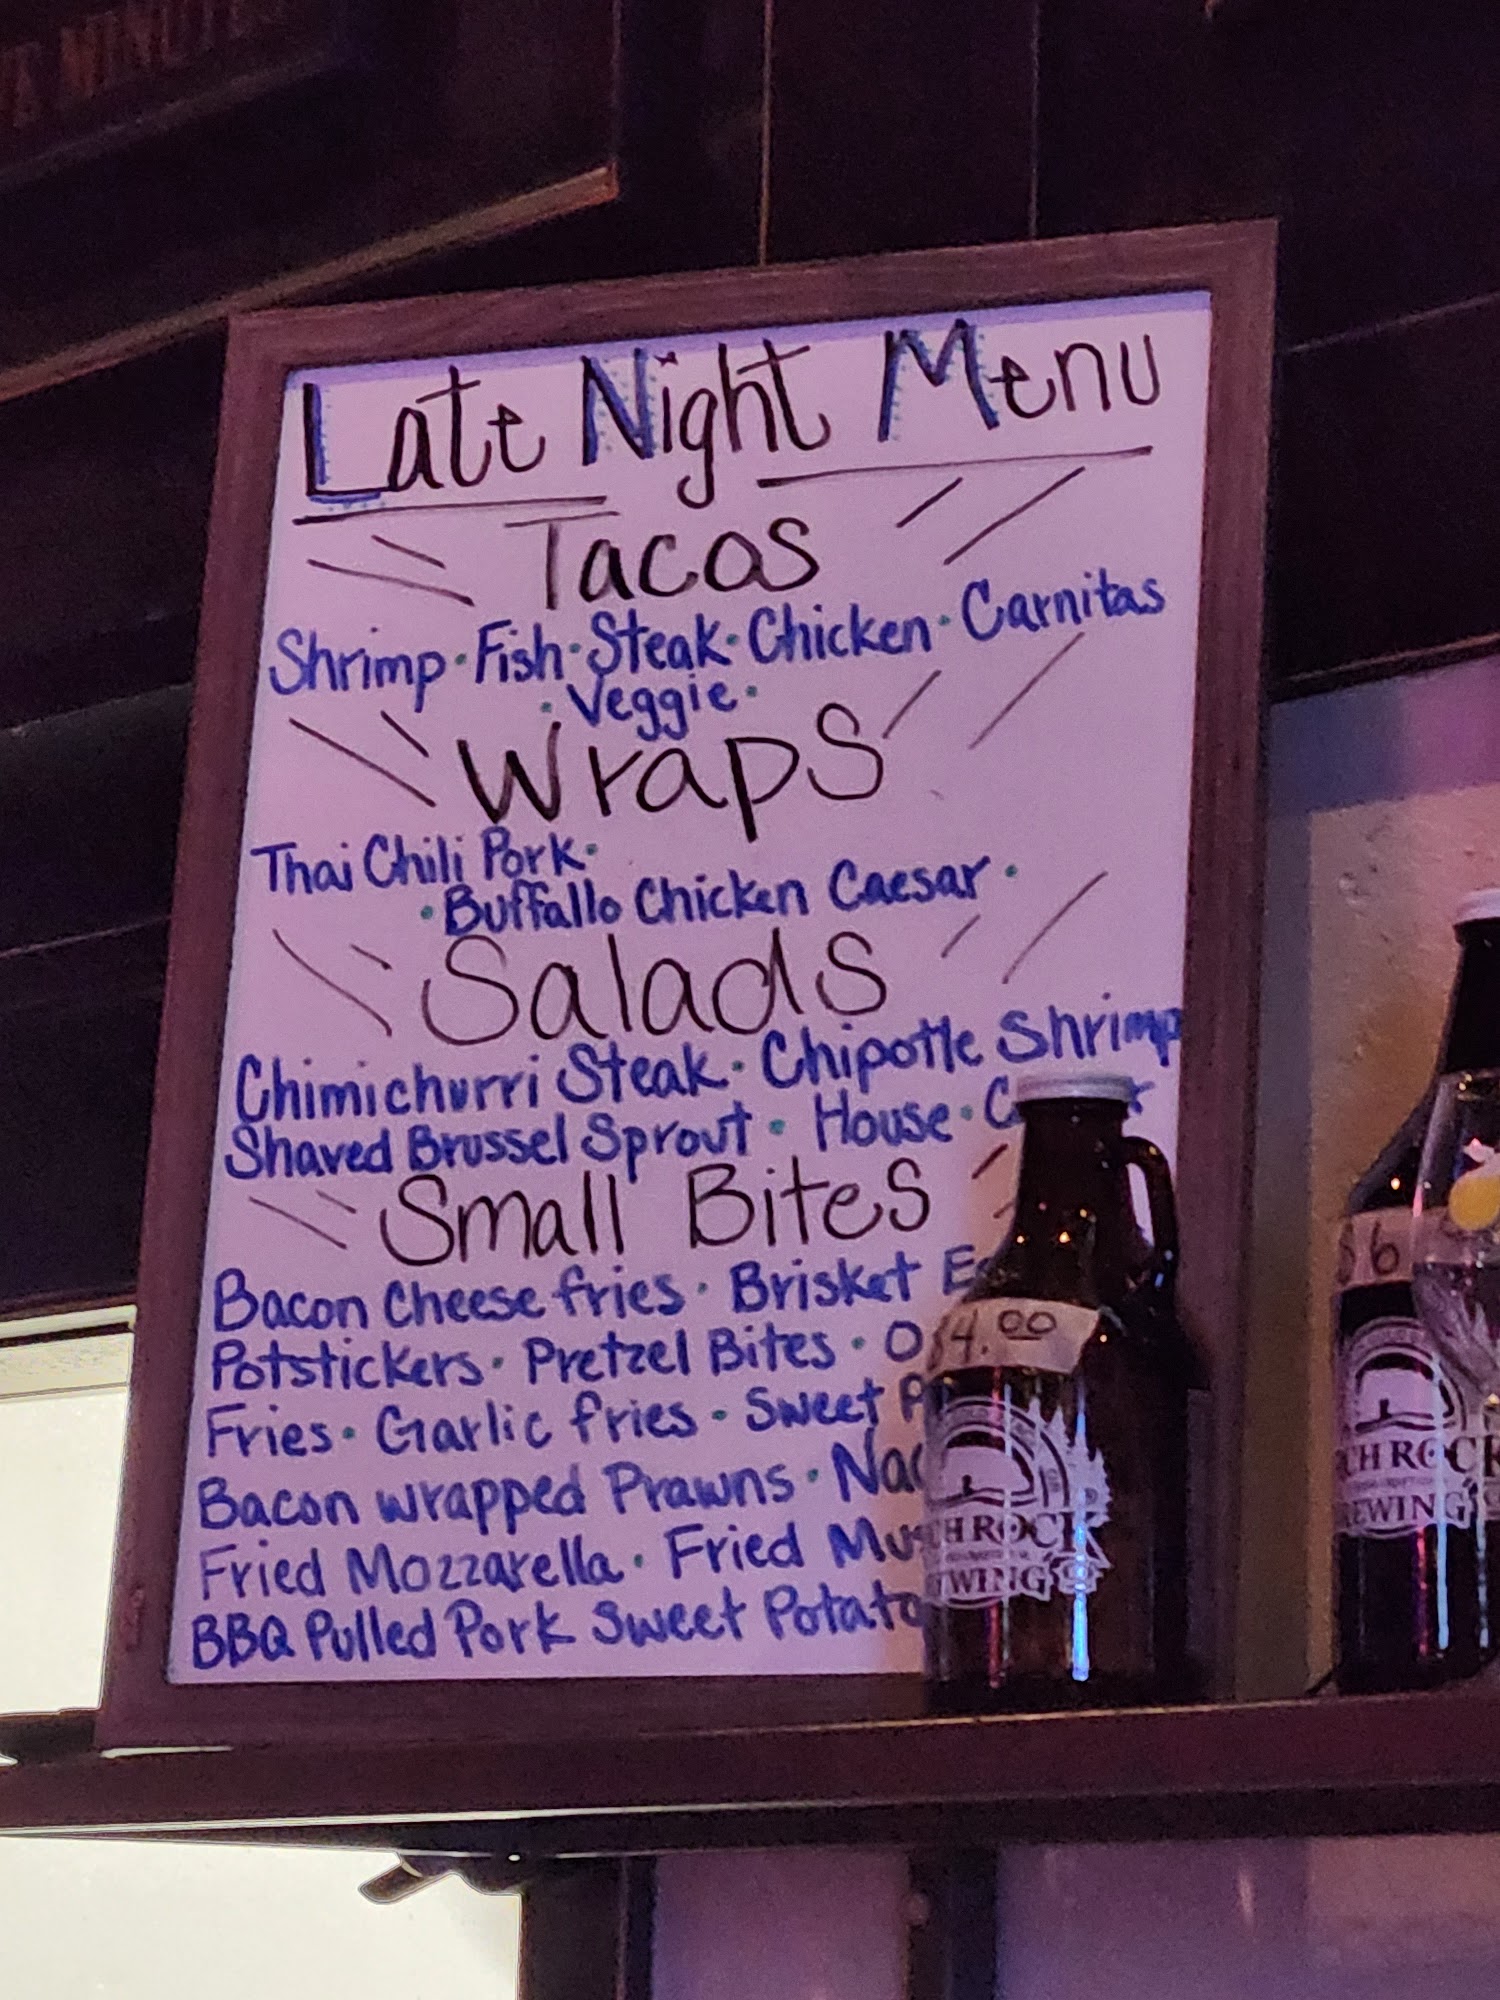 Late Night Menu
Tacos
Shrimp · Fish · Steak · Chicken · Carnitas
· Veggie ·
Wraps
Thai Chili Pork ·
· Buffallo Chicken Caesar ·
Salads
Chimichurri Steak · Chipotle Shrimp
Shaved Brussel Sprout · House ·
Small Bites
Bacon Cheese fries · Brisket
Potstickers · Pretzel Bites ·
Fries · Garlic fries · Sweet
Bacon wrapped Prawns ·
Fried Mozzarella · Fried
BBQ Pulled Pork Sweet Potato
$4.00
CH ROCK
EWING
$6
CH ROCK
EWING